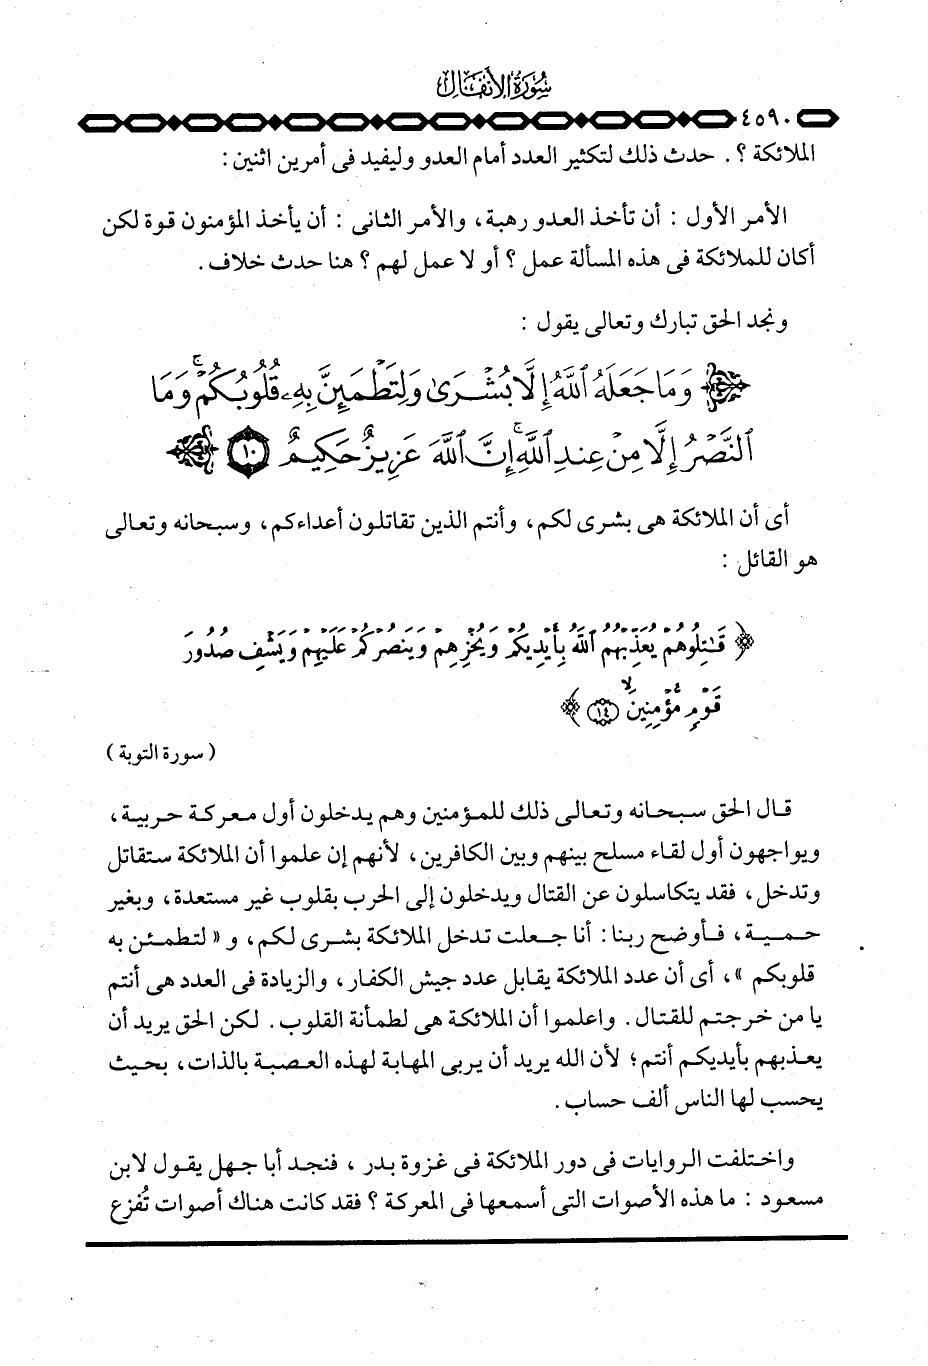 سورة الأنفال
٤٥٩٠
الملائكة ؟ . حدث ذلك لتكثير العدد أمام العدو وليفيد فى أمرين اثنين :
الأمر الأول : أن تأخذ العدو رهبة ، والأمر الثانى : أن يأخذ المؤمنون قوة لكن
أكان للملائكة فى هذه المسألة عمل ؟ أو لا عمل لهم ؟ هنا حدث خلاف .
ونجد الحق تبارك وتعالى يقول :
﴿ وَمَا جَعَلَهُ ٱللَّهُ إِلَّا بُشْرَىٰ وَلِتَطْمَئِنَّ بِهِۦ قُلُوبُكُمْ ۚ وَمَا
ٱلنَّصْرُ إِلَّا مِنْ عِندِ ٱللَّهِ ۚ إِنَّ ٱللَّهَ عَزِيزٌ حَكِيمٌ ١٠ ﴾
أى أن الملائكة هى بشرى لكم ، وأنتم الذين تقاتلون أعداءكم ، وسبحانه وتعالى
هو القائل :
﴿ قَـٰتِلُوهُمْ يُعَذِّبْهُمُ ٱللَّهُ بِأَيْدِيكُمْ وَيُخْزِهِمْ وَيَنصُرْكُمْ عَلَيْهِمْ وَيَشْفِ صُدُورَ
قَوْمٍ مُّؤْمِنِينَ ۙ ١٤ ﴾
( سورة التوبة )
قال الحق سبحانه وتعالى ذلك للمؤمنين وهم يدخلون أول معركة حربية ،
ويواجهون أول لقاء مسلح بينهم وبين الكافرين ، لأنهم إن علموا أن الملائكة ستقاتل
وتدخل ، فقد يتكاسلون عن القتال ويدخلون إلى الحرب بقلوب غير مستعدة ، وبغير
حمية ، فأوضح ربنا : أنا جعلت تدخل الملائكة بشرى لكم ، و « لتطمئن به
قلوبكم » ، أى أن عدد الملائكة يقابل عدد جيش الكفار ، والزيادة فى العدد هى أنتم
يا من خرجتم للقتال . واعلموا أن الملائكة هى لطمأنة القلوب . لكن الحق يريد أن
يعذبهم بأيديكم أنتم ؛ لأن الله يريد أن يربى المهابة لهذه العصبة بالذات ، بحيث
يحسب لها الناس ألف حساب .
واختلفت الروايات فى دور الملائكة فى غزوة بدر ، فنجد أبا جهل يقول لابن
مسعود : ما هذه الأصوات التى أسمعها فى المعركة ؟ فقد كانت هناك أصوات تُفزع